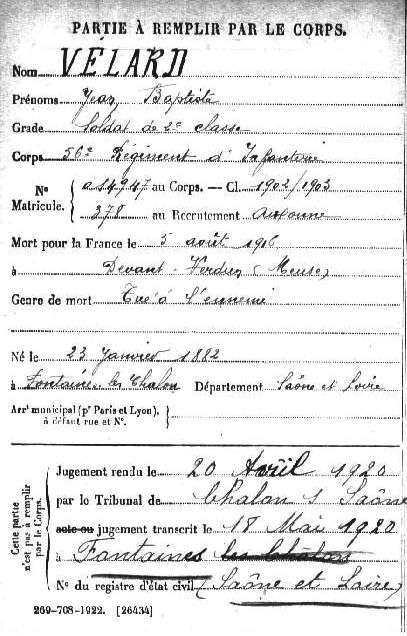 PARTIE À REMPLIR PAR LE CORPS.
Nom VÉLARD
Prénoms Jean Baptiste
Grade Soldat de 2e classe
Corps 56e Régiment d'Infanterie
No Matricule. a 14947 au Corps. — Cl. 1902/1903
378 au Recrutement Auxonne
Mort pour la France le 5 août 1916
à Devant-Verdun (Meuse)
Genre de mort Tué à l'ennemi
Né le 23 Janvier 1882
à Fontaines les Chalon Département Saône et Loire
Arrt municipal (pr Paris et Lyon), à défaut rue et No.
Cette partie n'est pas à remplir par le Corps.
Jugement rendu le 20 Avril 1920
par le Tribunal de Chalon s Saône
acte ou jugement transcrit le 18 Mai 1920
à Fontaines les Chalon
No du registre d'état civil (Saône et Loire)
269-708-1922. [26434]